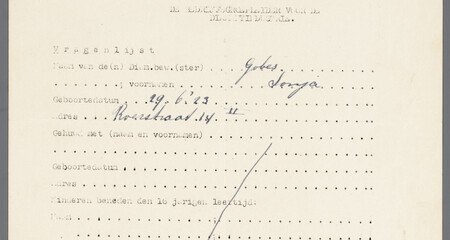 Vragenlijst
Naam van de(n) Diam.bew.(ster) . . . Gobes
; voornamen . . . Sonja
Geboortedatum . . . 29.6.23
Adres . . Roerstraat 14 II
Gehuwd met (naam en voornamen)
Geboortedatum
Adres
Kinderen beneden den 16 jarigen leeftijd:
Naam